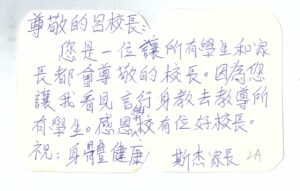 尊敬的呂校長:
您是一位讓所有學生和家
長都會尊敬的校長。因為您
讓我看見言行身教去教導所
有學生。感恩校有位好校長。
祝:身體健康
斯杰家長 2A